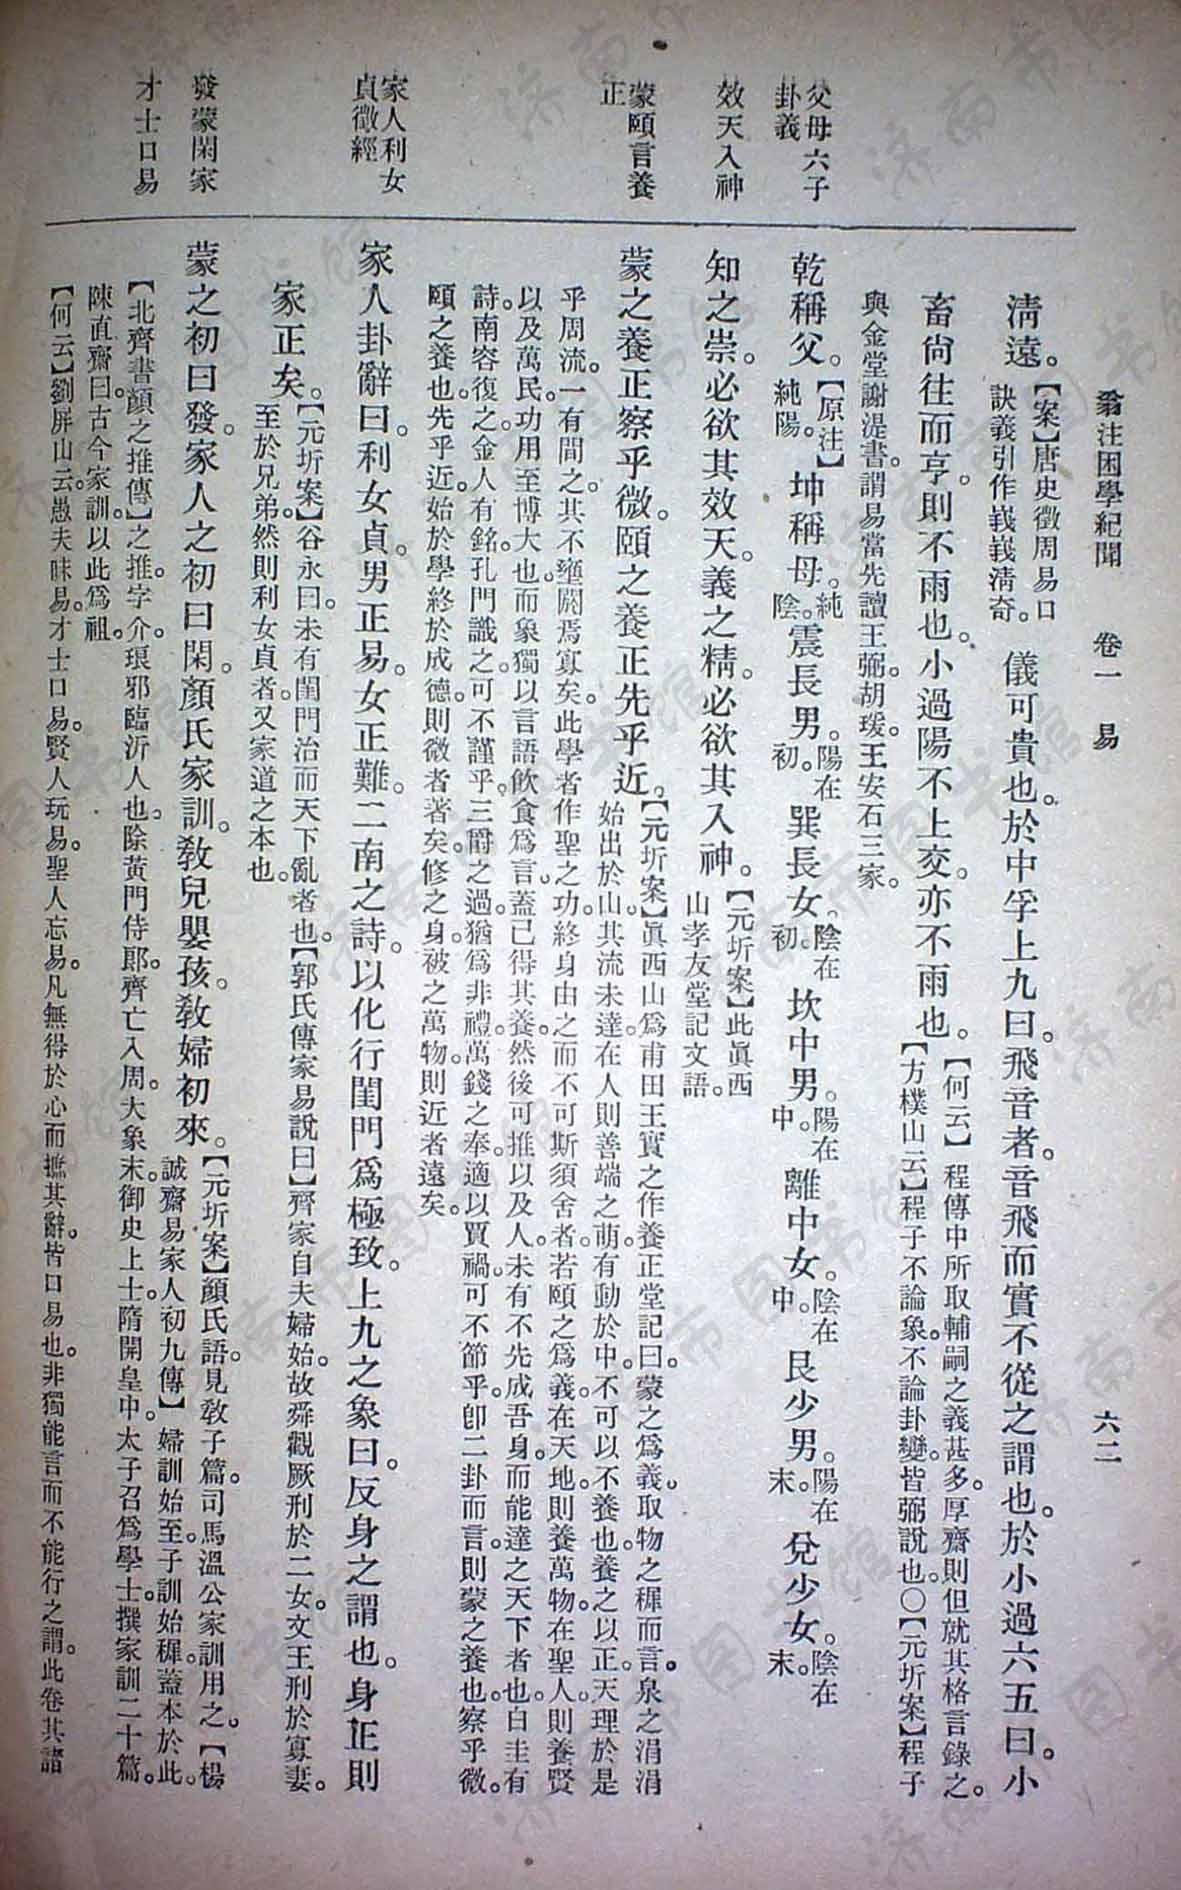 翁注困學紀聞　卷一　易　六二
父母六子
卦義
效天入神
蒙頤言養
正
家人利女
貞徵經
發蒙閑家
才士口易
清遠。【案】唐史徵周易口
訣義引作峩峩清奇。
儀可貴也。於中孚上九曰。飛音者。音飛而實不從之謂也。於小過六五曰。小
畜尙往而亨。則不雨也。小過陽不上交。亦不雨也。
【何云】程傳中所取輔嗣之義甚多。厚齋則但就其格言錄之。
【方樸山云】程子不論象。不論卦變。皆弼說也。○【元圻案】程子
與金堂謝湜書。謂易當先讀王弼。胡瑗。王安石三家。
乾稱父。【原注】
純陽。
坤稱母。純
陰。
震長男。陽在
初。
巽長女。陰在
初。
坎中男。陽在
中。
離中女。陰在
中。
艮少男。陽在
末。
兌少女。陰在
末。
知之崇。必欲其效天。義之精。必欲其入神。
【元圻案】此眞西
山孝友堂記文語。
蒙之養正察乎微。頤之養正先乎近。
【元圻案】眞西山爲甫田王實之作養正堂記曰。蒙之爲義。取物之穉而言。泉之涓涓
始出於山。其流未達。在人則善端之萌。有動於中。不可以不養也。養之以正。天理於是
乎周流。一有間之。其不壅閼焉寡矣。此學者作聖之功。終身由之而不可斯須舍者。若頤之爲義。在天地。則養萬物。在聖人。則養賢
以及萬民。功用至博大也。而象獨以言語飲食爲言。蓋己得其養。然後可推以及人。未有不先成吾身。而能達之天下者也。白圭有
詩。南容復之。金人有銘。孔門識之。可不謹乎。三爵之過。猶爲非禮。萬錢之奉。適以賈禍。可不節乎。卽二卦而言。則蒙之養也。察乎微。
頤之養也。先乎近。始於學。終於成德。則微者著矣。修之身。被之萬物。則近者遠矣。
家人卦辭曰。利女貞。男正易。女正難。二南之詩。以化行閨門爲極致。上九之象曰。反身之謂也。身正則
家正矣。
【元圻案】谷永曰。未有閨門治而天下亂者也。【郭氏傳家易說曰】齊家自夫婦始。故舜觀厥刑於二女。文王刑於寡妻。
至於兄弟。然則利女貞者。又家道之本也。
蒙之初曰發。家人之初曰閑。顏氏家訓。敎兒嬰孩。敎婦初來。
【元圻案】顏氏語。見敎子篇。司馬溫公家訓用之。【楊
誠齋易家人初九傳】婦訓始至。子訓始穉。蓋本於此。
【北齊書顏之推傳】之推。字介。琅邪臨沂人也。除黃門侍郞。齊亡入周。大象末。御史上士。隋開皇中。太子召爲學士。撰家訓二十篇。
陳直齋曰。古今家訓。以此爲祖。
【何云】劉屏山云。愚夫昧易。才士口易。賢人玩易。聖人忘易。凡無得於心而摭其辭。皆口易也。非獨能言而不能行之謂。此卷其諸